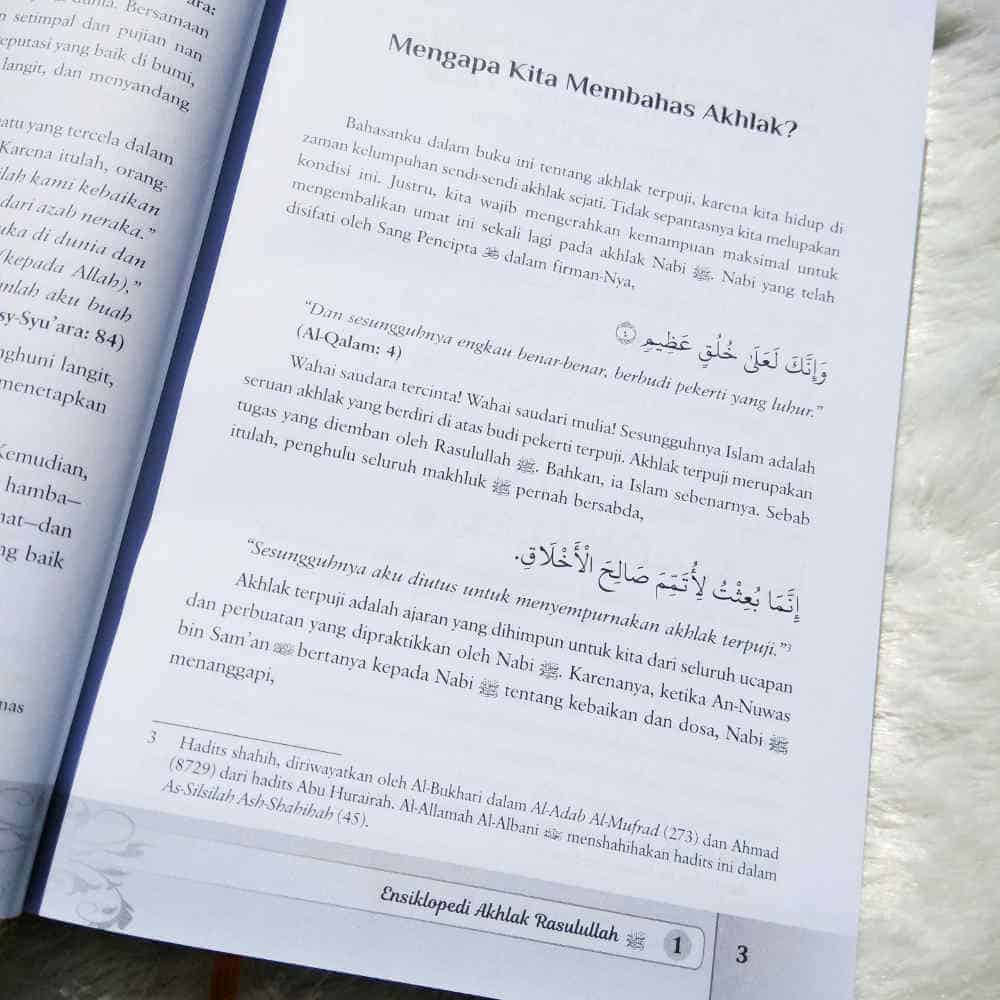 ara:
dunia. Bersamaan
setimpal dan pujian nan
eputasi yang baik di bumi,
langit, dan menyandang
atu yang tercela dalam
Karena itulah, orang-
ilah kami kebaikan
dari azab neraka."
uka di dunia dan
(kepada Allah),"
nlah aku buah
sy-Syu'ara: 84)
nghuni langit,
menetapkan
Kemudian,
hamba–
nat–dan
ng baik
nas
Mengapa Kita Membahas Akhlak?
Bahasanku dalam buku ini tentang akhlak terpuji, karena kita hidup di
zaman kelumpuhan sendi-sendi akhlak sejati. Tidak sepantasnya kita melupakan
kondisi ini. Justru, kita wajib mengerahkan kemampuan maksimal untuk
mengembalikan umat ini sekali lagi pada akhlak Nabi ﷺ. Nabi yang telah
disifati oleh Sang Pencipta ﷻ dalam firman-Nya,
وَإِنَّكَ لَعَلَىٰ خُلُقٍ عَظِيمٍ ۝٤
"Dan sesungguhnya engkau benar-benar, berbudi pekerti yang luhur."
(Al-Qalam: 4)
Wahai saudara tercinta! Wahai saudari mulia! Sesungguhnya Islam adalah
seruan akhlak yang berdiri di atas budi pekerti terpuji. Akhlak terpuji merupakan
tugas yang diemban oleh Rasulullah ﷺ. Bahkan, ia Islam sebenarnya. Sebab
itulah, penghulu seluruh makhluk ﷺ pernah bersabda,
إِنَّمَا بُعِثْتُ لِأُتَمِّمَ صَالِحَ الْأَخْلَاقِ.
"Sesungguhnya aku diutus untuk menyempurnakan akhlak terpuji."3
Akhlak terpuji adalah ajaran yang dihimpun untuk kita dari seluruh ucapan
dan perbuatan yang dipraktikkan oleh Nabi ﷺ. Karenanya, ketika An-Nuwas
bin Sam'an bertanya kepada Nabi ﷺ tentang kebaikan dan dosa, Nabi ﷺ
menanggapi,
3 Hadits shahih, diriwayatkan oleh Al-Bukhari dalam Al-Adab Al-Mufrad (273) dan Ahmad
(8729) dari hadits Abu Hurairah. Al-Allamah Al-Albani menshahihakan hadits ini dalam
As-Silsilah Ash-Shahihah (45).
Ensiklopedi Akhlak Rasulullah ﷺ 1 3